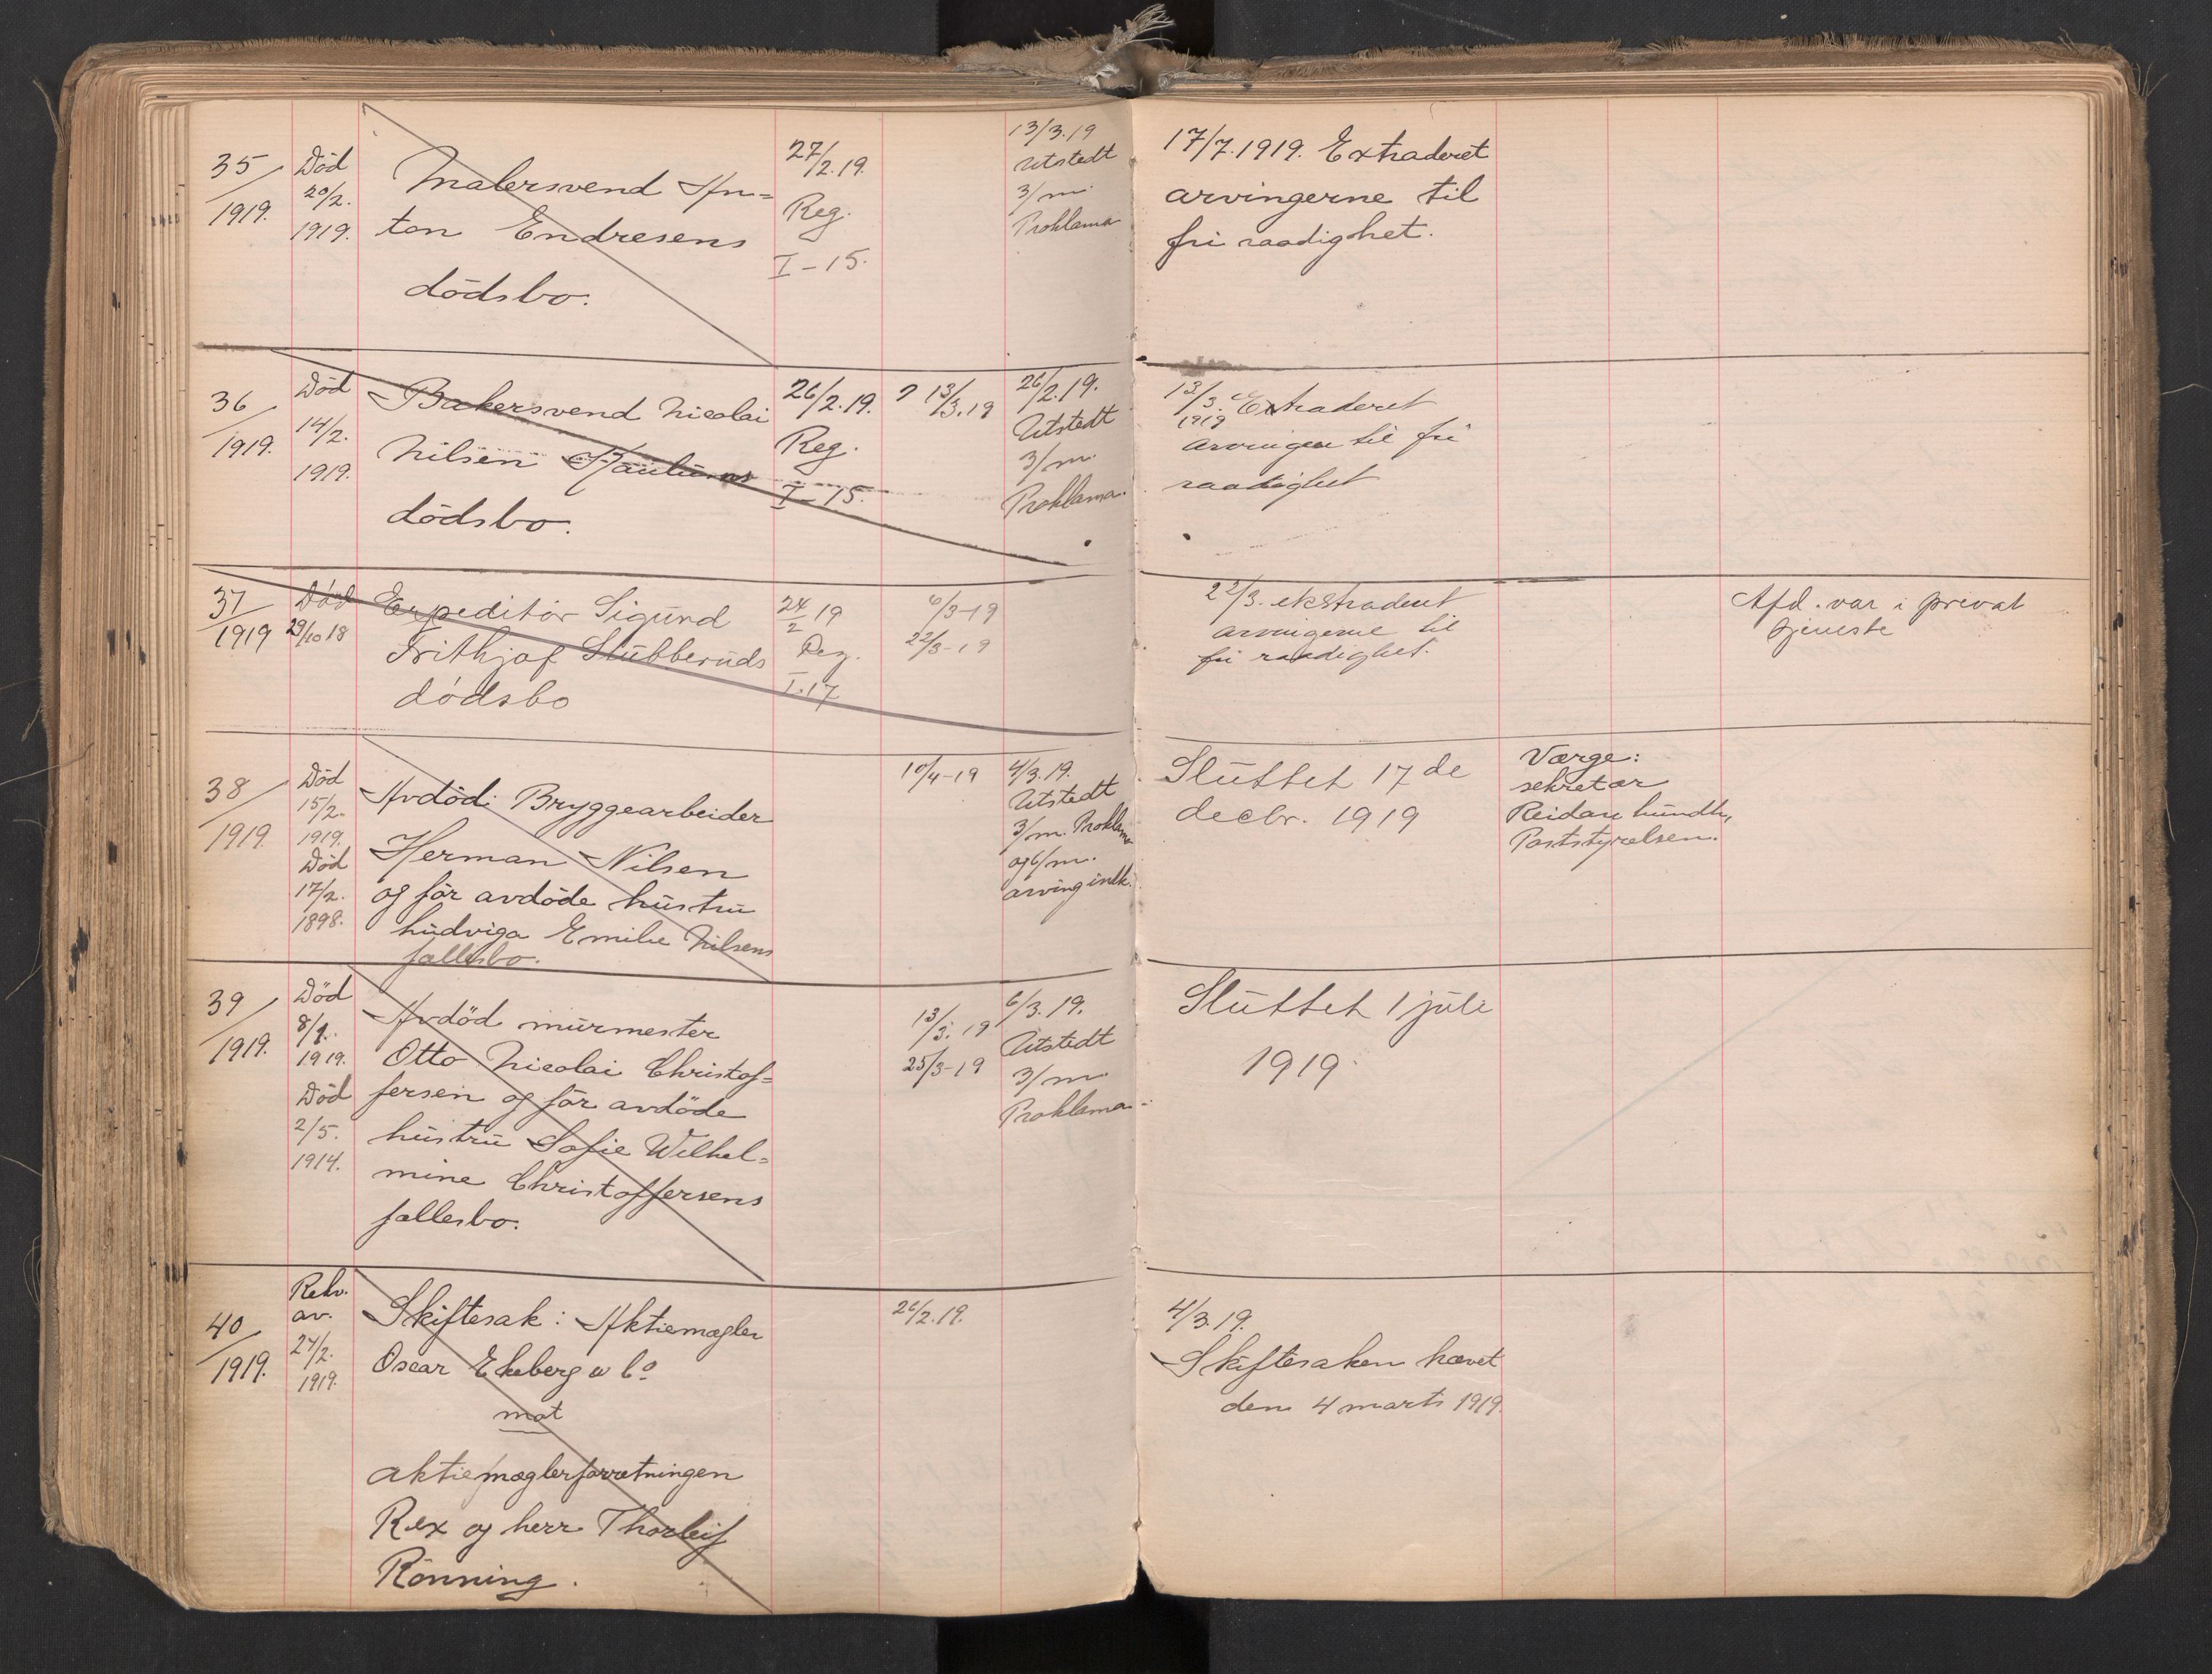 35/1919.
Död
20/2.
1919.
Malersvend An=
ton Endresens
dödsbo.
27/2.19.
Reg.
I-15.
13/3.19
Utstedt
3/m.
Proklama
17/7.1919. Extraderet
arvingerne til
fri raadighet.
36/1919.
Död
14/2.
1919.
Bakersvend Nicolai
Nilsen
dödsbo.
26/2.19.
Reg.
I-15.
13/3.19
26/2.19.
Utstedt
3/m.
Proklama.
13/3. Extraderet
1919
arvingen til fri
raadighet
37/1919
Död
29/10 18
Expeditör Sigurd
Frithjof Stubberuds
dödsbo
24/2 19
Reg.
I.17
6/3-19
22/3-19
22/3. ekstraderet
arvingerne til
fri raadighet.
Afd. var i privat
tjeneste
38/1919.
Död
15/2.
1919.
Död
17/2.
1898.
Avdöd: Bryggearbeider
Herman Nilsen
og för avdöde hustru
Ludviga Emilie Nilsens
fællesbo.
10/4-19
4/3.19.
Utstedt
3/m. Proklama
og 6/m.
arvingindk.
Sluttet 17 de
decbr. 1919
Værge:
sekretær
Reidar Lundh,
Poststyrelsen.
39/1919.
Död
8/1.
1919.
Död
2/5.
1914.
Avdöd murmester
Otto Nicolai Christof=
fersen og för avdöde
hustru Sofie Wilhel=
mine Christoffersens
fællesbo.
13/3.19
25/3-19
6/3.19.
Utstedt
3/m.
Proklama.
Sluttet 1 juli
1919.
40/1919.
Rekv.
av.
24/2.
1919.
Skiftesak: Aktiemægler
Oscar Ekeberg & Co
mot
aktiemæglerforretningen
Rex og herr Thorleif
Rönning.
26/2.19.
4/3.19.
Skiftesaken hævet
den 4 marts 1919.